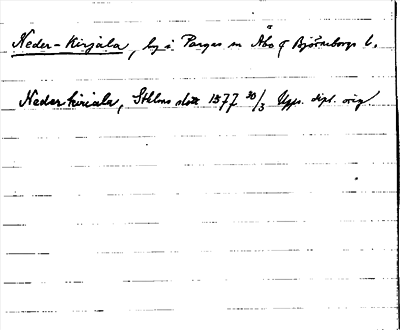 Neder-Kirjala, by i Pargas sn Åbo o Björneborgs l.
Neder kiriala, Sthlms slott 1577 30/3 Upps. dipl. orig.